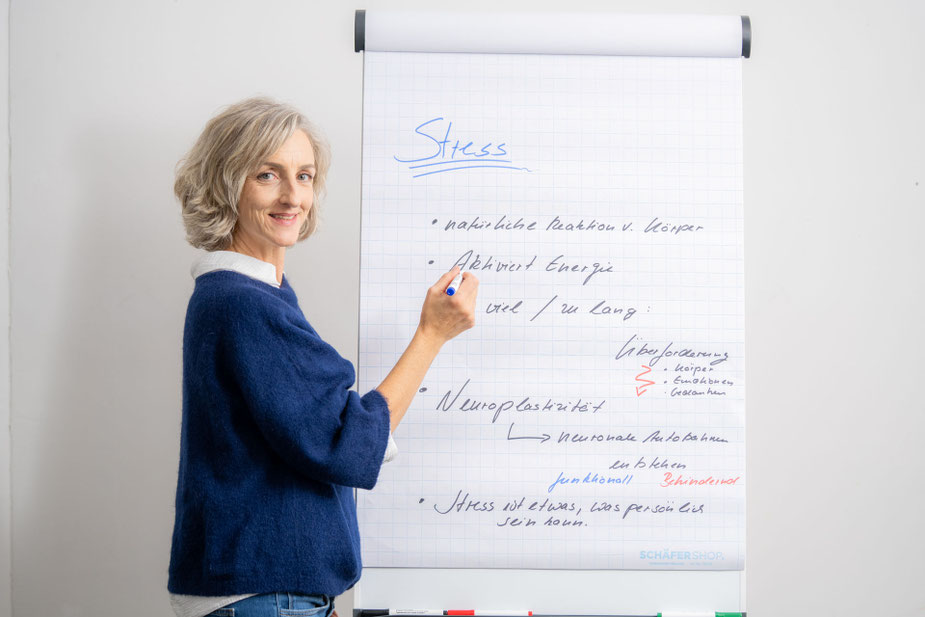 Stress
• natürliche Reaktion v. Körper
• Aktiviert Energie
viel / zu lang:
Überforderung
• Körper
• Emotionen
• Gedanken
• Neuroplastizität
↳ neuronale Autobahnen
entstehen
funktionall Behindernd
• Stress ist etwas, was persönlich
sein kann.
SCHÄFERSHOP.